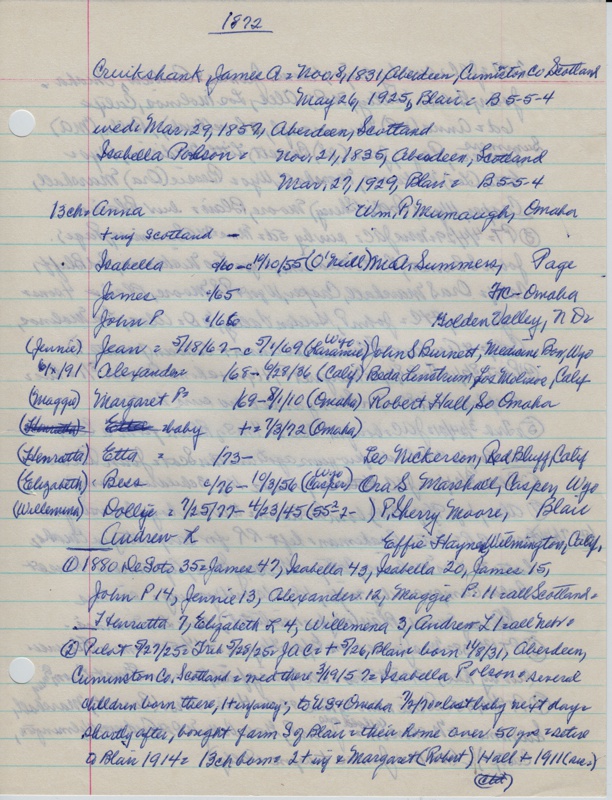 1872
Cruikshank, James A = Nov. 8, 1831, Aberdeen, Cumiston Co, Scotland
May 26, 1925, Blair = B 5-5-4
wed = Mar. 29, 1859, Aberdeen, Scotland
Isabella Polson = Nov. 21, 1835, Aberdeen, Scotland
Mar. 27, 1929, Blair = B 5-5-4
13ch = Anna Wm. P. Mumaugh, Omaha
+ inf Scotland -
Isabella c/60 - c10/10/55 (O'Neill) M.A. Summers, Page
James c/65 Omaha
John P c/66 Golden Valley, N D =
(Jennie) Jean = 5/18/67 - c5/4/69 (Laramie Wyo) John S Burnett, Medicine Bow, Wyo
Alexander /68 - 6/28/36 (Calif) Beda Linstrum, Los Molinos, Calif
(Maggie) Margaret P = /69 - 8/1/10 (Omaha) Robert Hall, So Omaha
(Henratta) Etta = baby + = 7/3/72 (Omaha)
(Henratta) Etta = /73 - Leo Nickerson, Red Bluff, Calif
(Elizabeth) = Bess c/76 - 10/3/56 (Casper Wyo) Ora S Marshall, Casper, Wyo
(Willemena) Dollye = 7/25/77 - 4/23/45 (552-2- ) P. Sherry Moore, Blair
Andrew L Effie Hayne, Wilmington, Calif,
① 1880 DeSoto 35 = James 47, Isabella 43, Isabella 20, James 15,
John P 14, Jennie 13, Alexander 12, Maggie P. 11 = all Scotland =
Henratta 7, Elizabeth L 4, Willemena 3, Andrew L 1 = all Neb =
② Pilot 5/27/25 = Trib 5/28/25 = JAC = + 5/26, Blair = born 11/8/31, Aberdeen,
Cuminston Co, Scotland = wed there 3/19/57 = Isabella Polson = several
children born there, + infancy; to US = Omaha lost baby next day =
shortly after, bought farm S of Blair = their home over 50 yrs = retire
to Blair 1914 = 13ch born = 2 + inf = Margaret (Robert) Hall + 1911